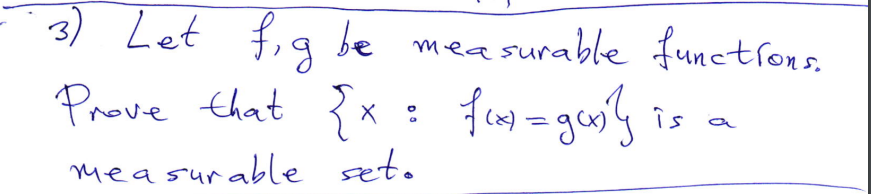 3) Let f, g be measurable functions.
Prove that {x : f(x) = g(x)} is a
measurable set.